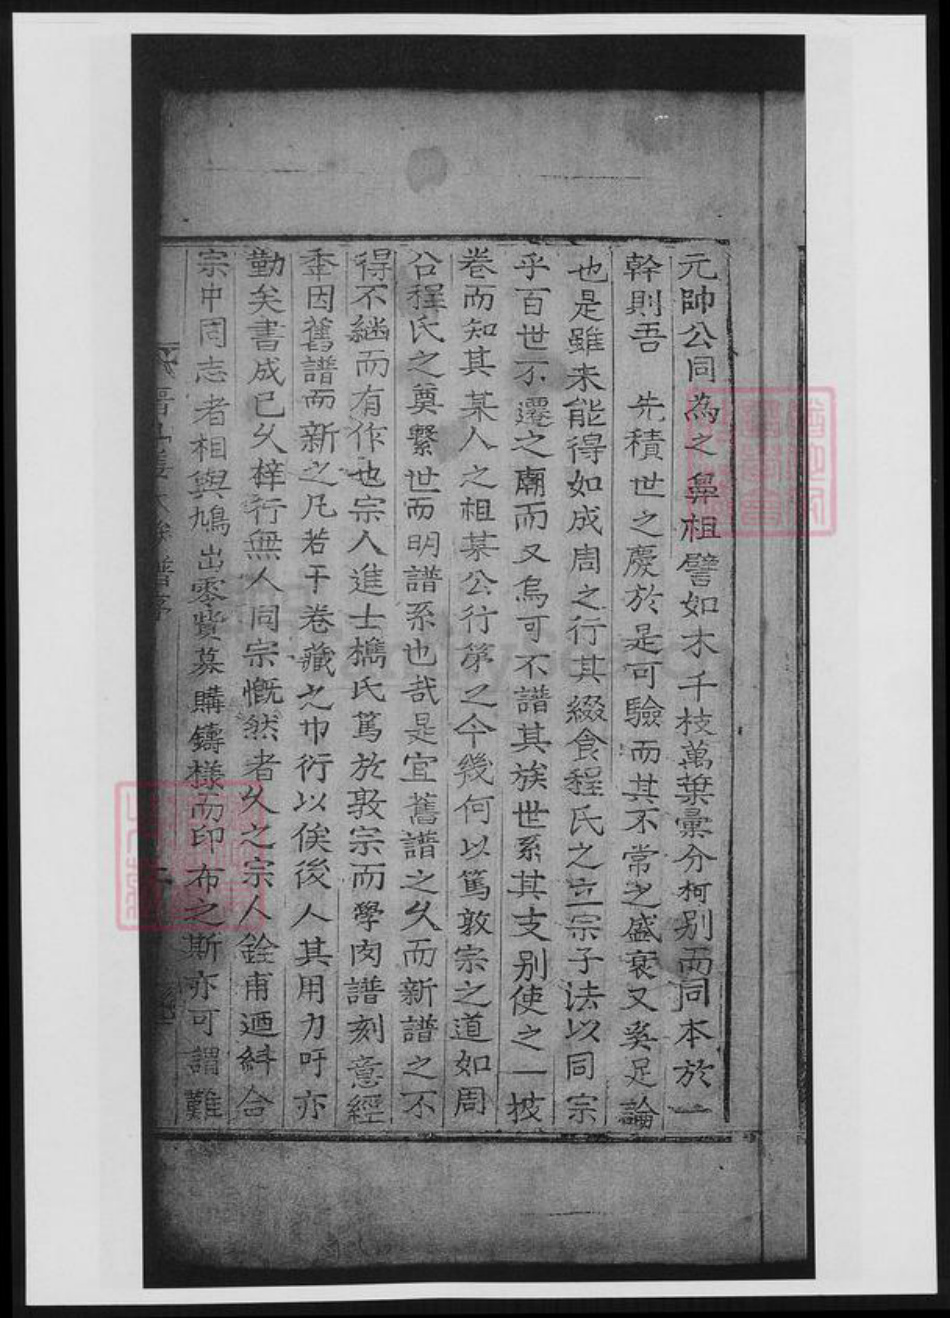 元帥公同為之鼻祖譬如木千枝萬葉彙分柯別而同本於一
幹則吾 先積世之慶於是可驗而其不常之盛衰又奚足論
也是雖未能得如成周之行其綴食程氏之立宗子法以同宗
乎百世不遷之廟而又烏可不譜其族世系其支別使之一披
卷而知其某人之祖某公行第之今幾何以篤敦宗之道如周
公程氏之奠繫世而明譜系也哉是宜舊譜之久而新譜之不
得不繼而有作也宗人進士檇氏篤於敦宗而學閃譜刻意經
因舊譜而新之凡若干卷藏之巾衍以俟後人其用力吁亦
勤矣書成已久梓行無人同宗慨然者久之宗人銓甫迺糾合
宗中同志者相與鳩出零貲募購鑄樣而印布之斯亦可謂難
晉山姜氏族譜序